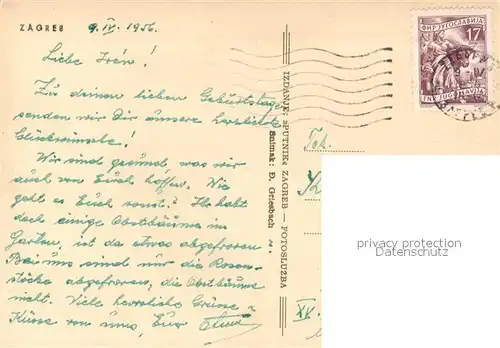 ZAGREB
9. IV. 1956.
Liebe Irén!
Zu deinem lieben Geburtstage
senden wir Dir unsere herzlichste
Glückwünsche!
Wir sind gesund, was wir
auch von Euch hoffen. Wie
geht es Euch sonst? Ihr habt
doch einige Obstbäume im
Garten, ist da etwas abgefroren
Bei uns sind nur die Rosen-
stöcke abgefroren, die Obstbäume
nicht. Viele herzliche Grüsse
Küsse von uns, Euer
IZDANJE: »PUTNIK« ZAGREB — FOTOSLUŽBA
Snimak: Đ. Griesbach
FNR JUGOSLAVIJA 17
XV.
privacy protection
Datenschutz